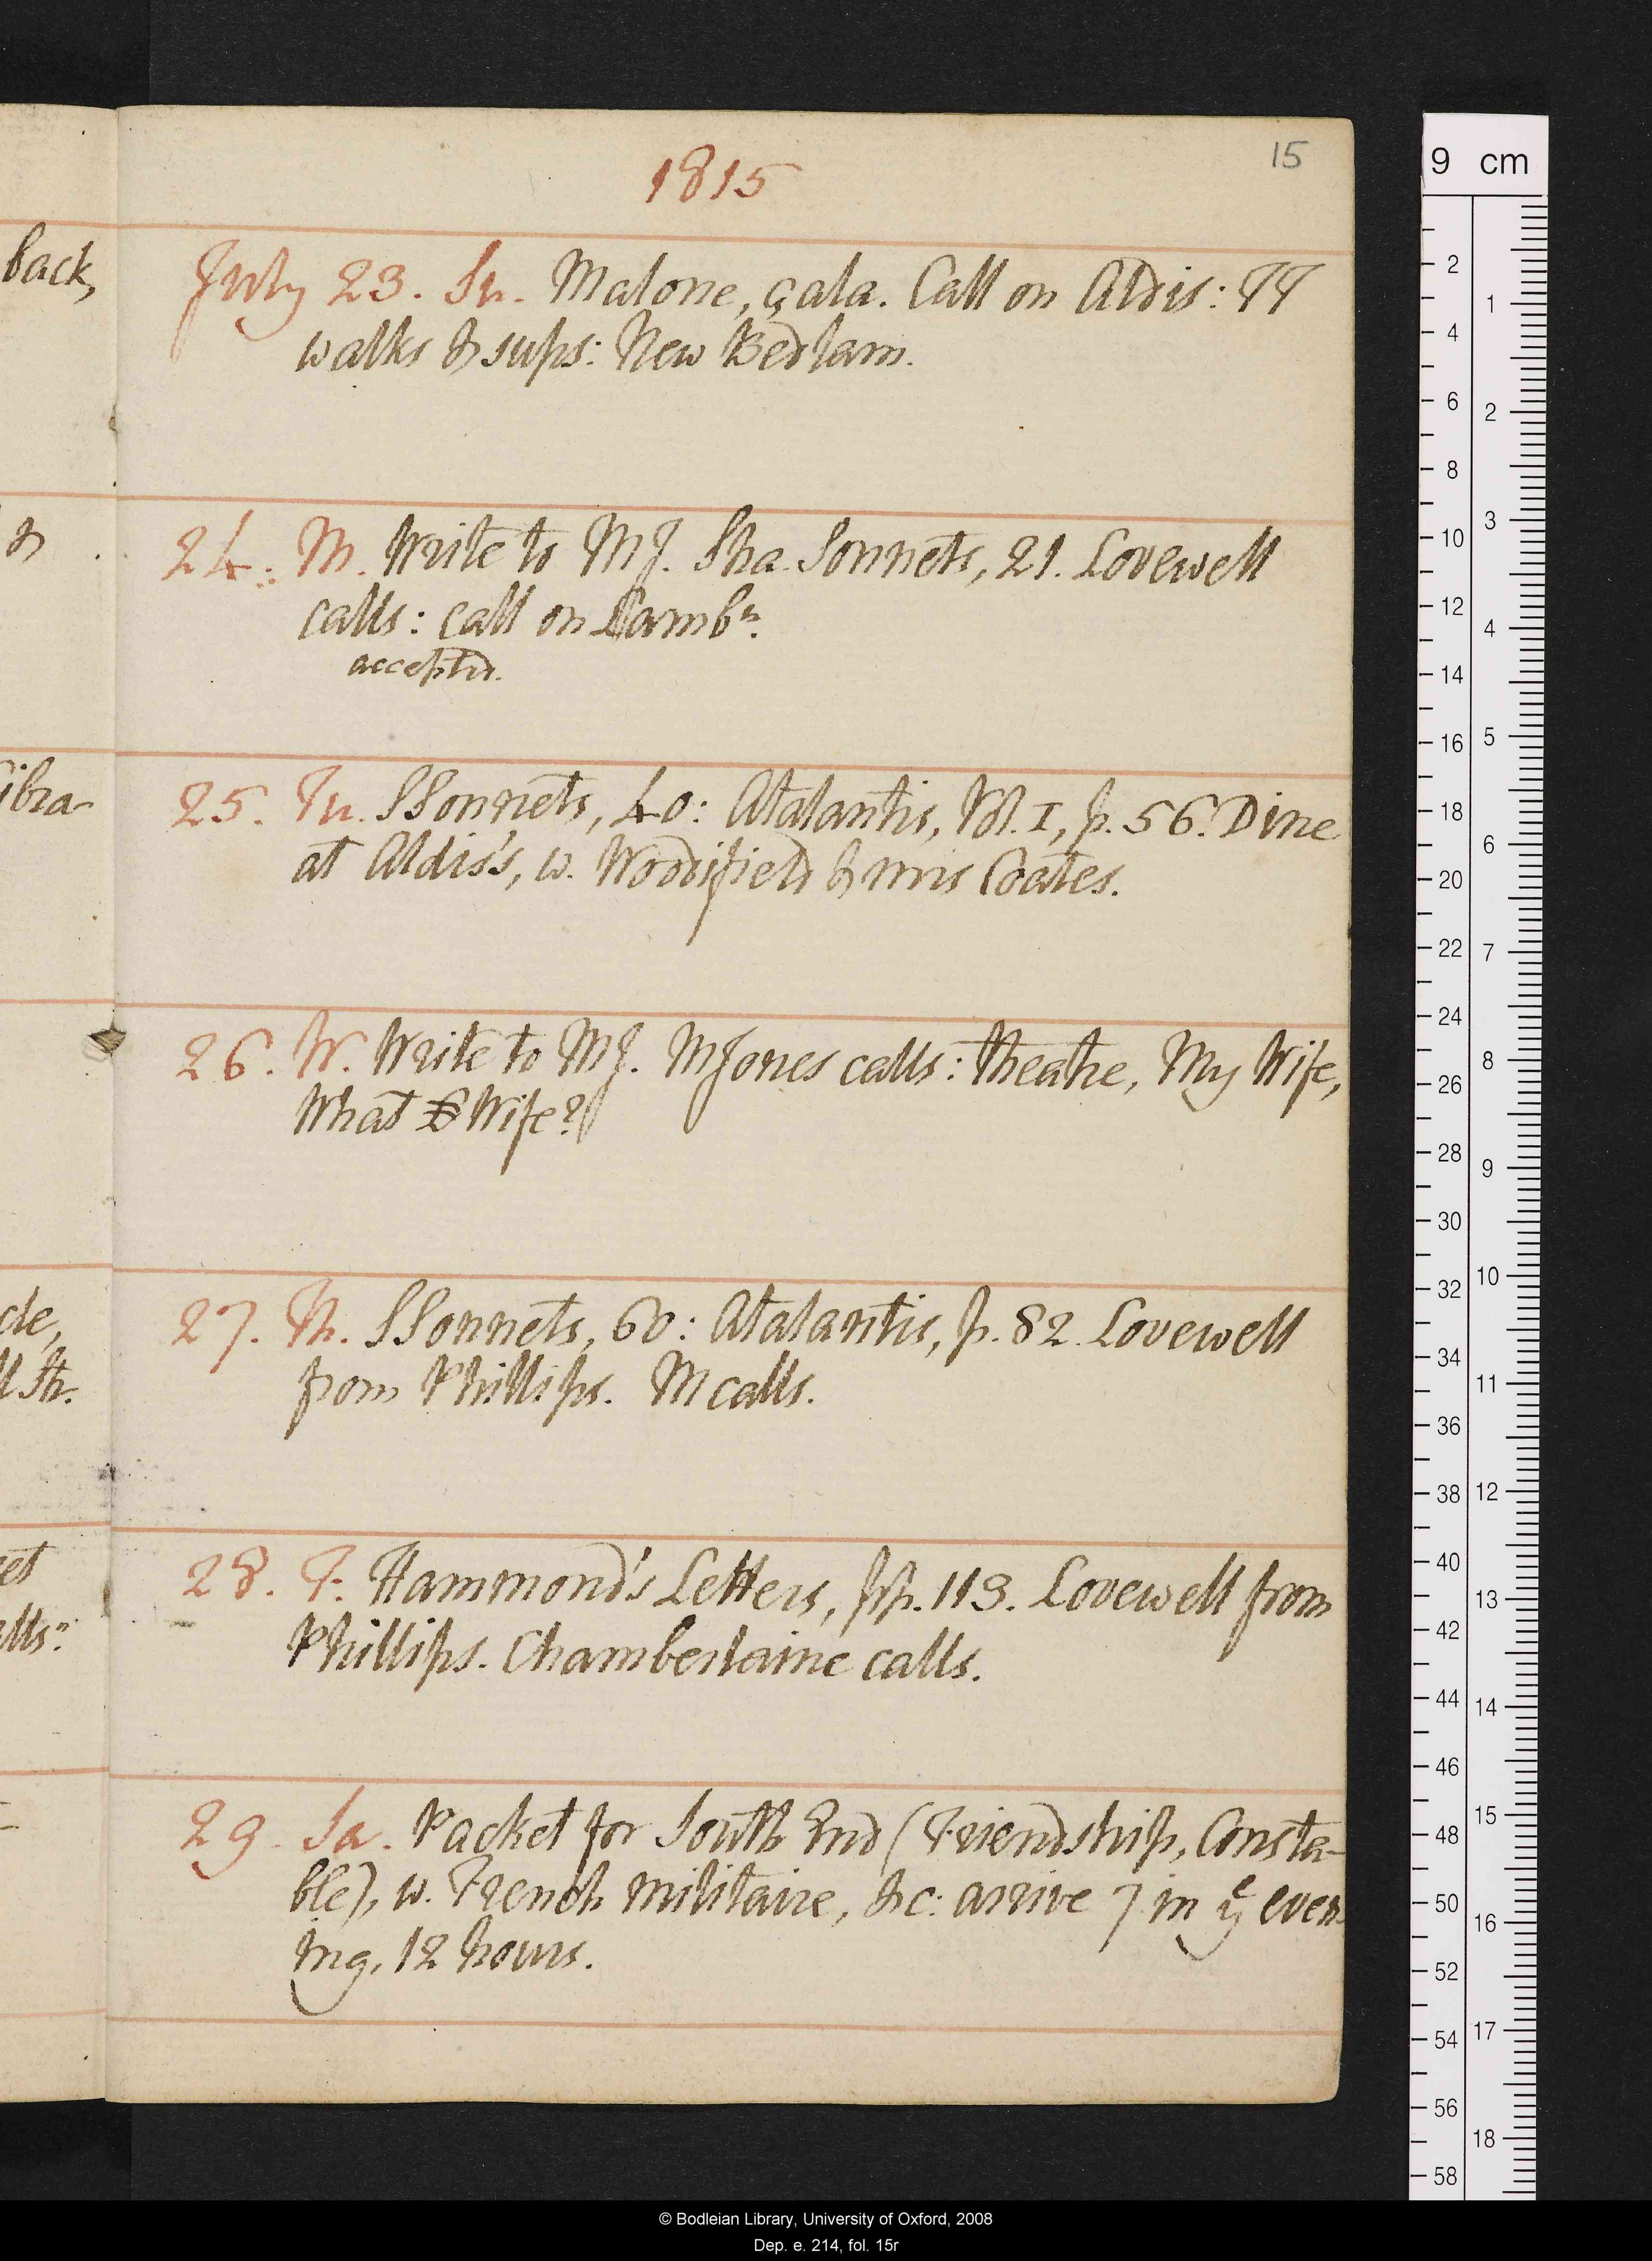 15
1815
back,
July 23. Su. Malone, çala. Call on Aldis: TT
walks & sups: New Bedlam.
&
24. M. Write to MJ. Sha. Sonnets, 21. Lovewell
calls: call on Lambn.
accepted.
ibra-
25. Tu. SSonnets, 40: Atalantis, Vol. I, p. 56. Dine
at Aldis's, w. Woodifield & mis Coates.
26. W. Write to MJ. MJones calls: theatre, My Wife,
What Wife?
cle,
27. Th. SSonnets, 60: Atalantis, p. 82. Lovewell
ll Str.
from Phillips. M calls.
et
28. F. Hammond's Letters, pp. 113. Lovewell from
alls:
Phillips. Chamberlaine calls.
29. Sa. Packet for South End (Friendship, Consta-
ble), w. French militaire, &c: arrive 7 in ye even
ing, 12 hours.
9 cm
2
4
6
8
10
12
14
16
18
20
22
24
26
28
30
32
34
36
38
40
42
44
46
48
50
52
54
56
58
1
2
3
4
5
6
7
8
9
10
11
12
13
14
15
16
17
18
© Bodleian Library, University of Oxford, 2008
Dep. e. 214, fol. 15r